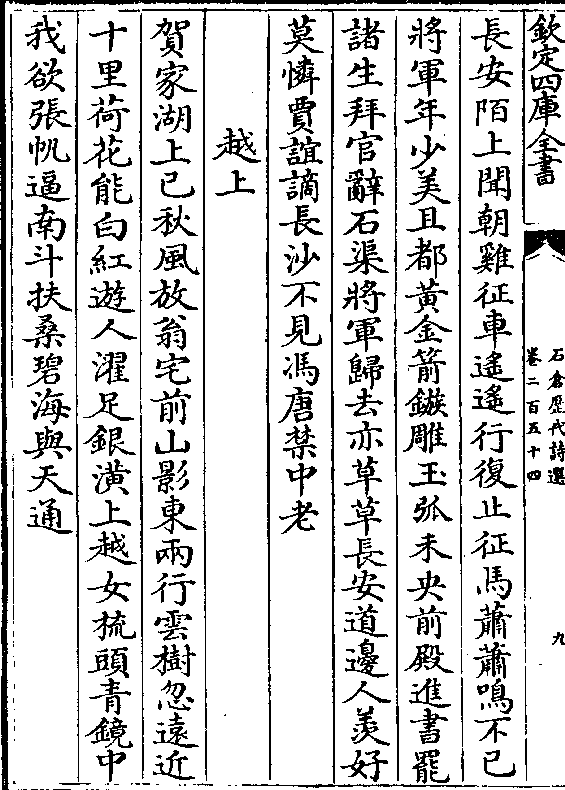 欽定四庫全書
石倉歷代詩選
卷二百五十四
九
長安陌上聞朝雞征車遙遙行復止征馬蕭蕭鳴不已
將軍年少美且都黃金箭鏃雕玉弧未央前殿進書罷
諸生拜官辭石渠將軍歸去亦草草長安道邊人羨好
莫憐賈誼謫長沙不見馮唐禁中老
越上
賀家湖上已秋風放翁宅前山影東兩行雲樹忽遠近
十里荷花能白紅遊人濯足銀潢上越女梳頭青鏡中
我欲張帆逼南斗扶桑碧海與天通